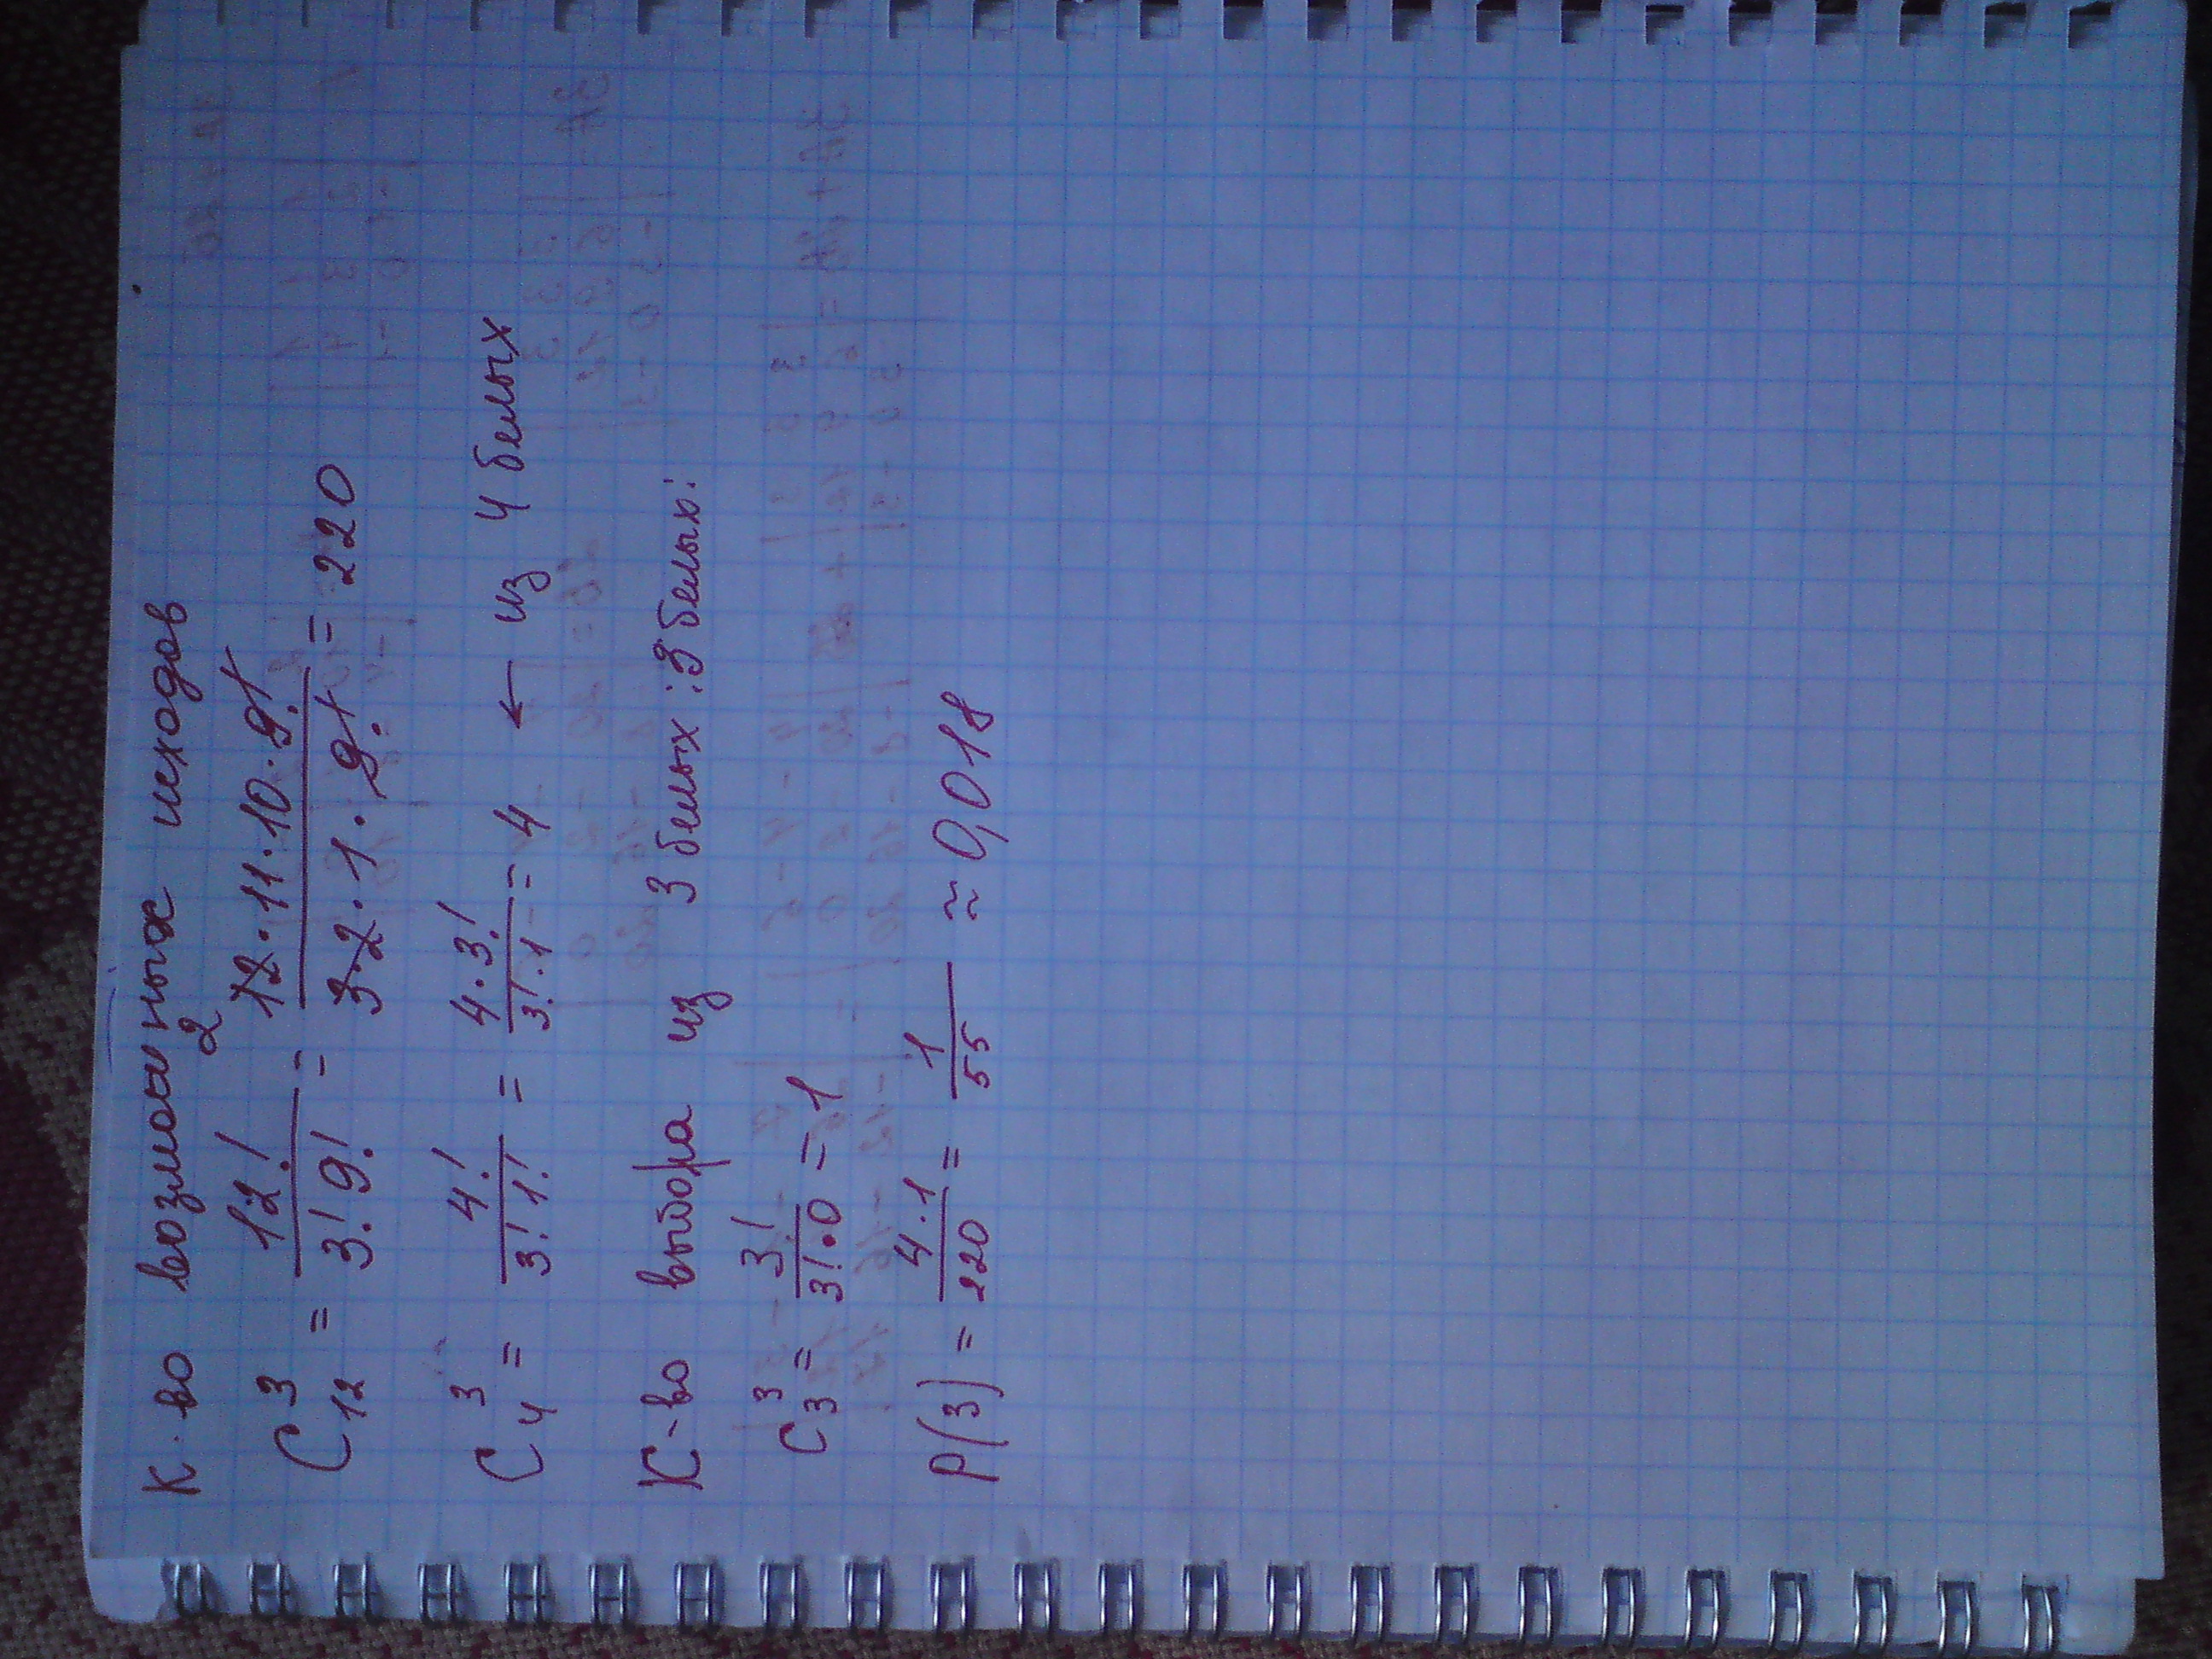 К-во возможных исходов
C₁₂³ = 12! / 3! 9! = 12·11·10·9! / 3·2·1·9! = 220
2
C₄³ = 4! / 3! 1! = 4·3! / 3!·1 = 4 ← из 4 белых
К-во выбора из 3 белых : 3 белых:
C₃³ = 3! / 3!·0 = 1
P(3) = 4·1 / 220 = 1 / 55 ≈ 0,018